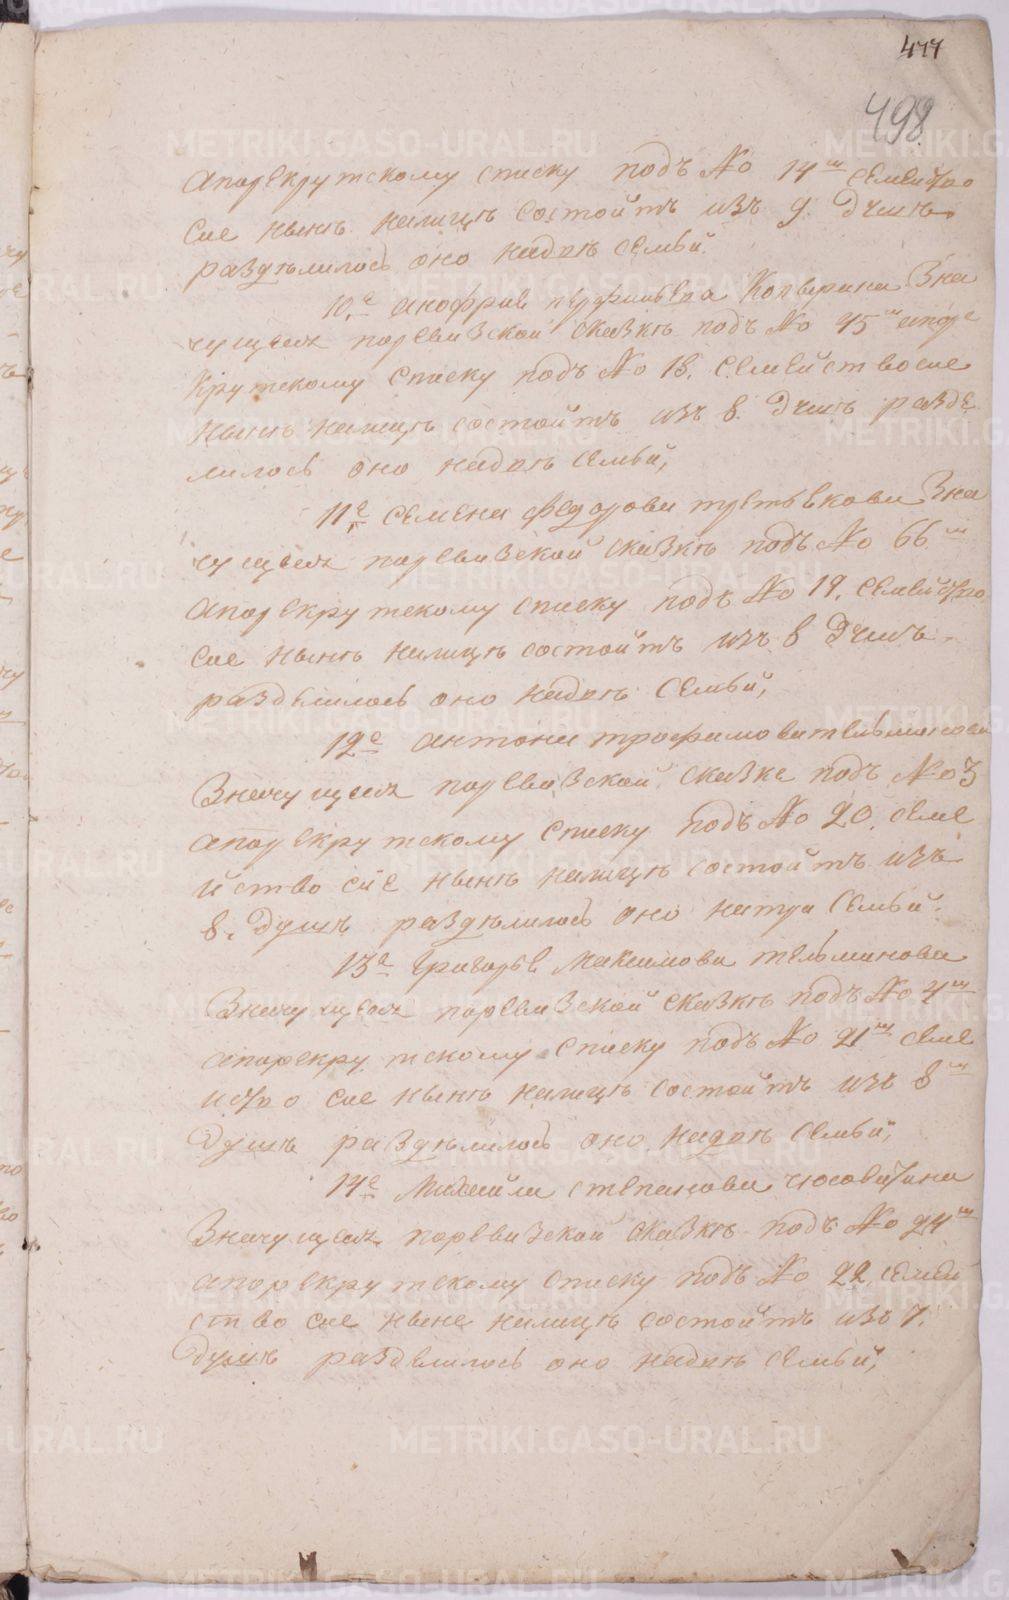 477
498
апорекрутскому списку подъ № 14м семейство
сие нынѣ налицѣ состоитъ изъ 9. Душъ
раздѣлилось оно надвѣ семьи.
10.е анофрия перфильева Копырина Зна
чущееся поревизской сказкѣ подъ № 45м апоре
крутскому списку подъ № 18. семействосие
нынѣ налицѣ состоитъ изъ 8. Душъ разде
лилось оно надвѣ семьи,
11е семена Федорова третьякова Зна
чущееся поревизской сказкѣ подъ № 66.м
апорекрутскому списку подъ № 19. семейство
сие нынѣ налицѣ состоитъ изъ 8 Душъ
разделилось оно надвѣ семьи,
12е антона трофимова тельминова
Значущееся поревизской сказке подъ № 3
апорекрутскому списку подъ № 20. семе
йство сие нынѣ налицѣ состоитъ изъ
8. Душъ раздѣлилось оно натри семьи.
13е Григорья Максимова тельминова
Значущееся поревизской сказкѣ подъ № 4м
апорекрутскому списку подъ № 21м семе
йство сие нынѣ налицѣ состоитъ изъ 8м
Душъ раздѣлилось оно надвѣ семьи,
14е Михаила степанова чюсовитина
Значущееся поревизской сказкѣ подъ № 24м
апорекрутскому списку подъ № 22. семей
ство сие ныне налицѣ состоитъ изъ 7.
Душъ разделилось оно надвѣ семьи,
METRIKI.GASO-URAL.RU